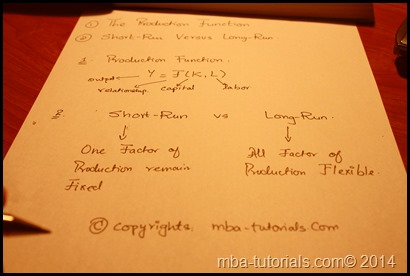 ① The Production Function
② Short-Run Versus Long-Run
1. Production Function.
output Y = F(K, L)
relationship. capital labor
2. Short-Run vs Long-Run.
One Factor of All Factor of
Production remain Production Flexible.
Fixed
© Copyrights, mba-tutorials.Com
mba-tutorials.com© 2014